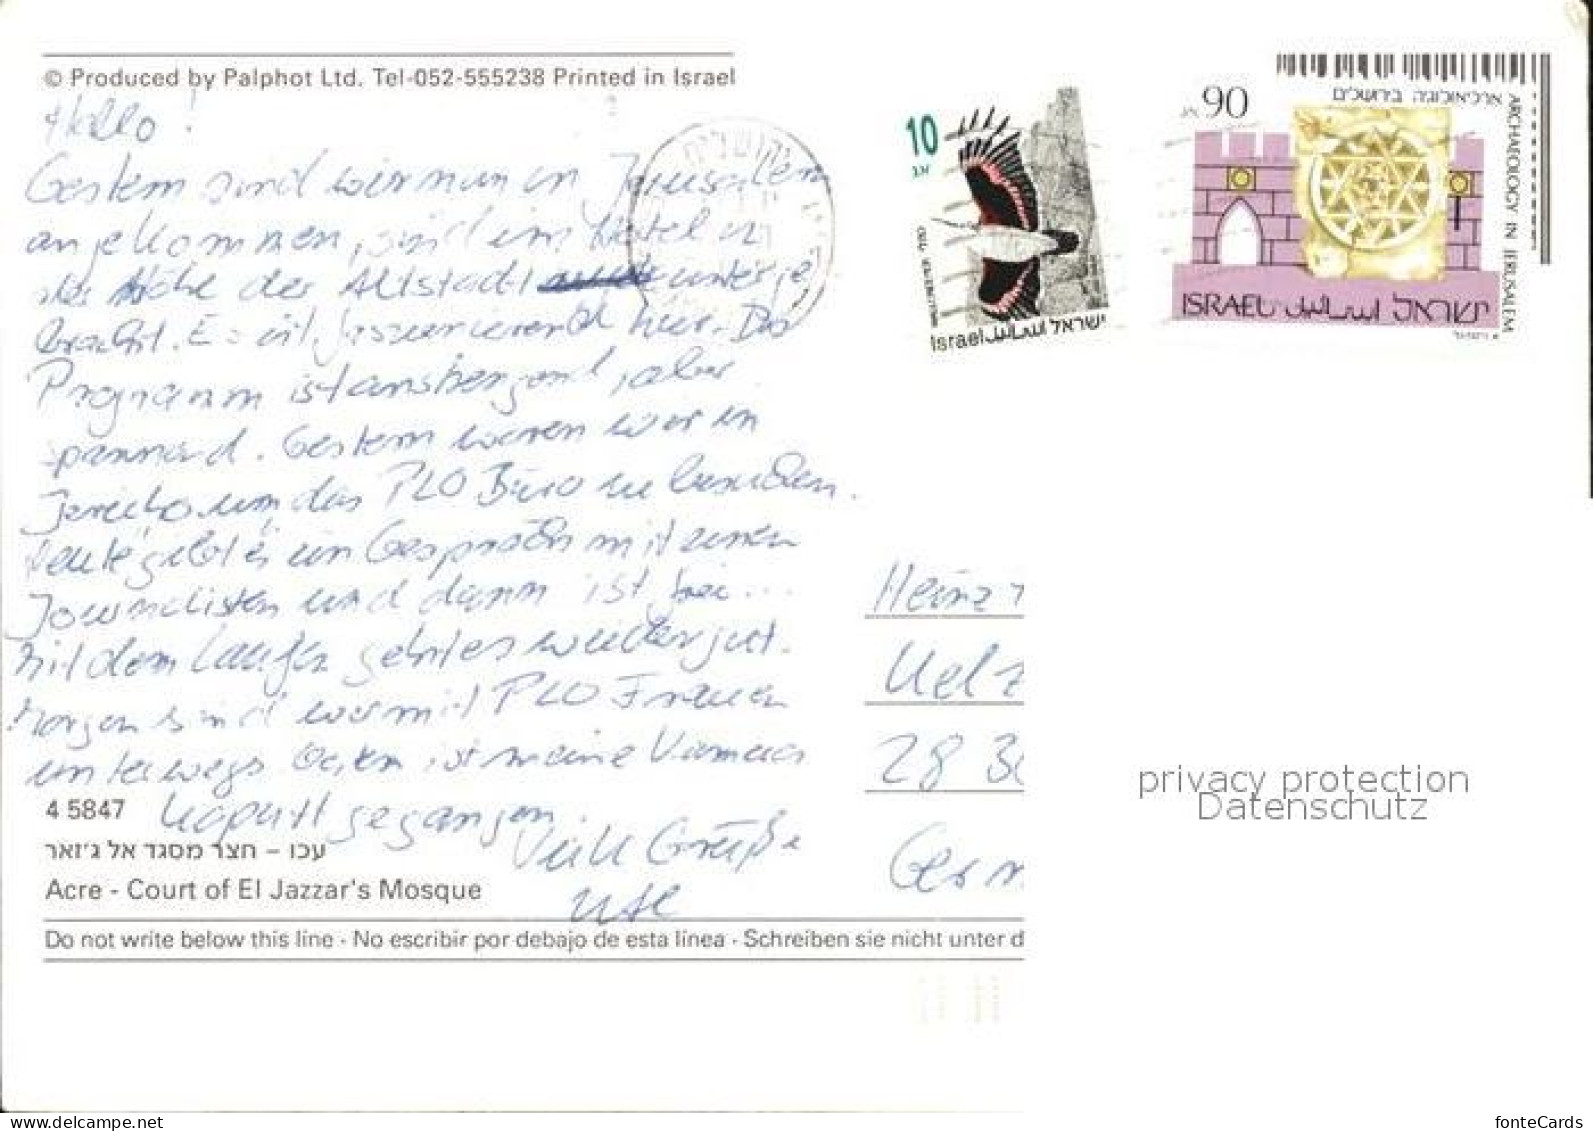 © Produced by Palphot Ltd. Tel-052-555238 Printed in Israel
Hallo!
Gestern sind wir nun in Jerusalem
angekommen, sind im Hotel in
der Nähe der Altstadt unterge
bracht. Es ist faszinierend hier. Das
Programm ist anstrengend, aber
spannend. Gestern waren wir in
Jericho um das PLO Büro zu besuchen.
Heute gibt es ein Gespräch mit einem
Journalisten und dann ist frei...
Mit dem Laufen geht es weiter gut.
Morgen sind wir mit PLO Frauen
unterwegs. Gestern ist meine Kamera
kaputt gegangen.
Viele Grüße
Ute
4 5847
עכו – חצר מסגד אל ג'זאר
Acre - Court of El Jazzar's Mosque
Do not write below this line - No escribir por debajo de esta línea - Schreiben sie nicht unter d
10
אג
Israel اسرائيل ישראל
90
אג
ארכיאולוגיה בירושלים
ARCHAEOLOGY IN JERUSALEM
ISRAEL اسرائيل ישראל
Heinz
Uelz
28 3
Germ
privacy protection
Datenschutz
www.delcampe.net
fonteCards